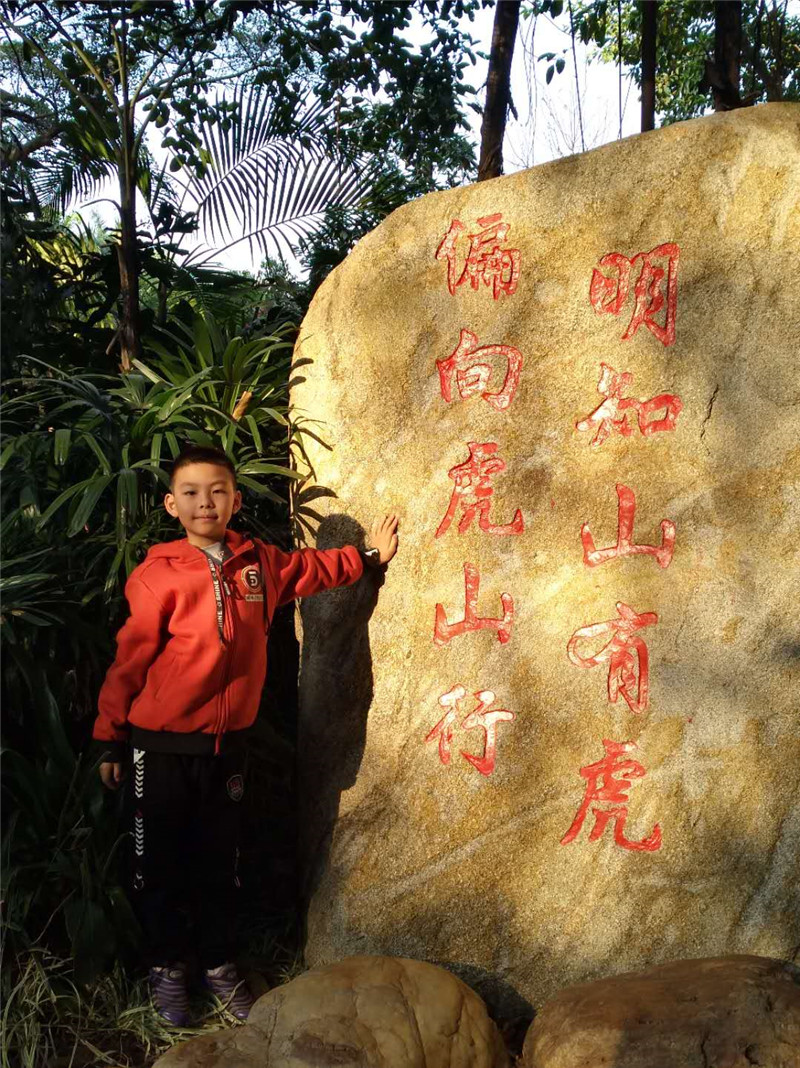 明知山有虎
偏向虎山行
5